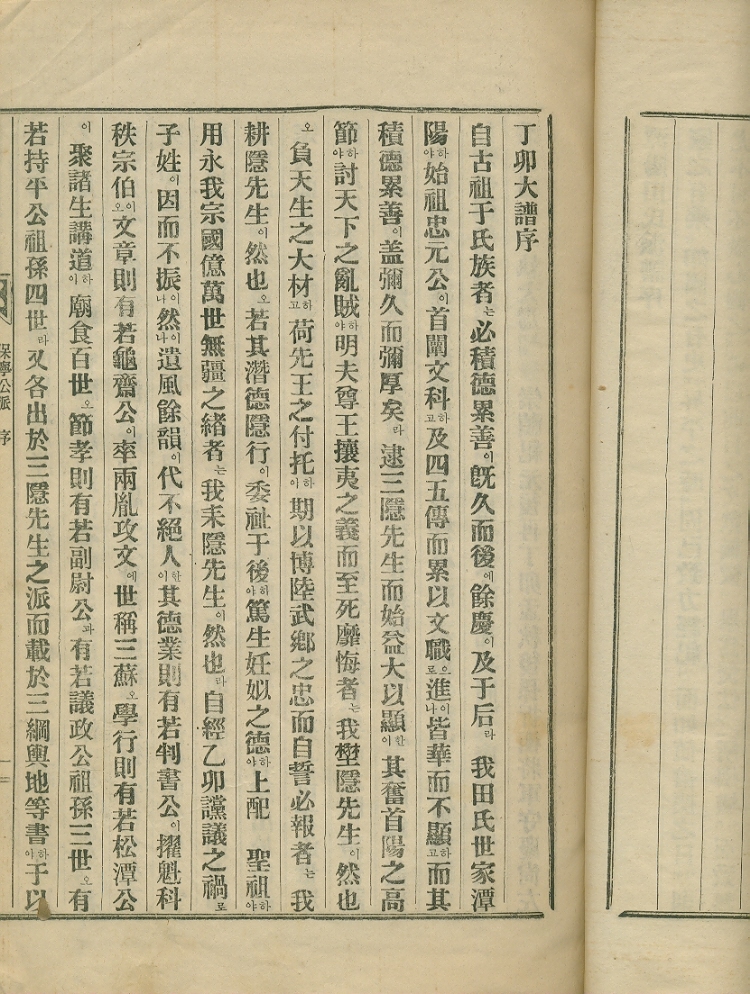 丁卯大譜序
自古祖于氏族者는必積德累善이旣久而後에餘慶이及于后라 我田氏世家潭
陽하야始祖忠元公이首闡文科하고及四五傳而累以文職으로進이나皆華而不顯하고而其
積德累善이盖彌久而彌厚矣라 逮三隱先生而始益大以顯한이 其奮首陽之高
節하야討天下之亂賊하야明夫尊王攘夷之義而至死靡悔者는我壄隱先生이然也
오 負天生之大材하고荷先王之付托하이 期以博陸武鄕之忠而自誓必報者는 我
耕隱先生이然也오若其潛德隱行이委祉于後하야篤生妊姒之德하야上配 聖祖하야
用永我宗國億萬世無疆之緖者는我耒隱先生이然也라自經乙卯讜議之禍로
子姓이因而不振이나然이나遺風餘韻이代不絕人한이其德業則有若判書公이擢魁科
秩宗伯이오文章則有若龜齋公이率兩胤攻文에世稱三蘇오學行則有若松潭公
이 聚諸生講道하이 廟食百世오節孝則有若副尉公과有若議政公祖孫三世오有
若持平公祖孫四世라又各出於三隱先生之派而載於三綱輿地等書하야于以
保學公派 序
一